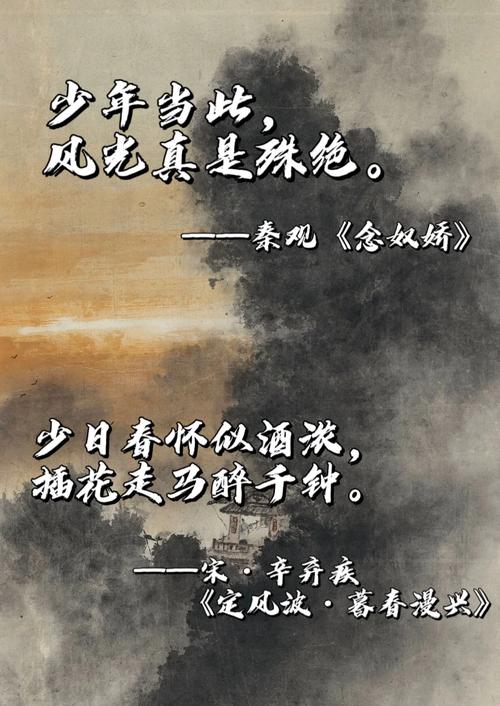 少年当此，
风光真是殊绝。
——秦观《念奴娇》
少日春怀似酒浓，
插花走马醉千钟。
——宋·辛弃疾
《定风波·暮春漫兴》